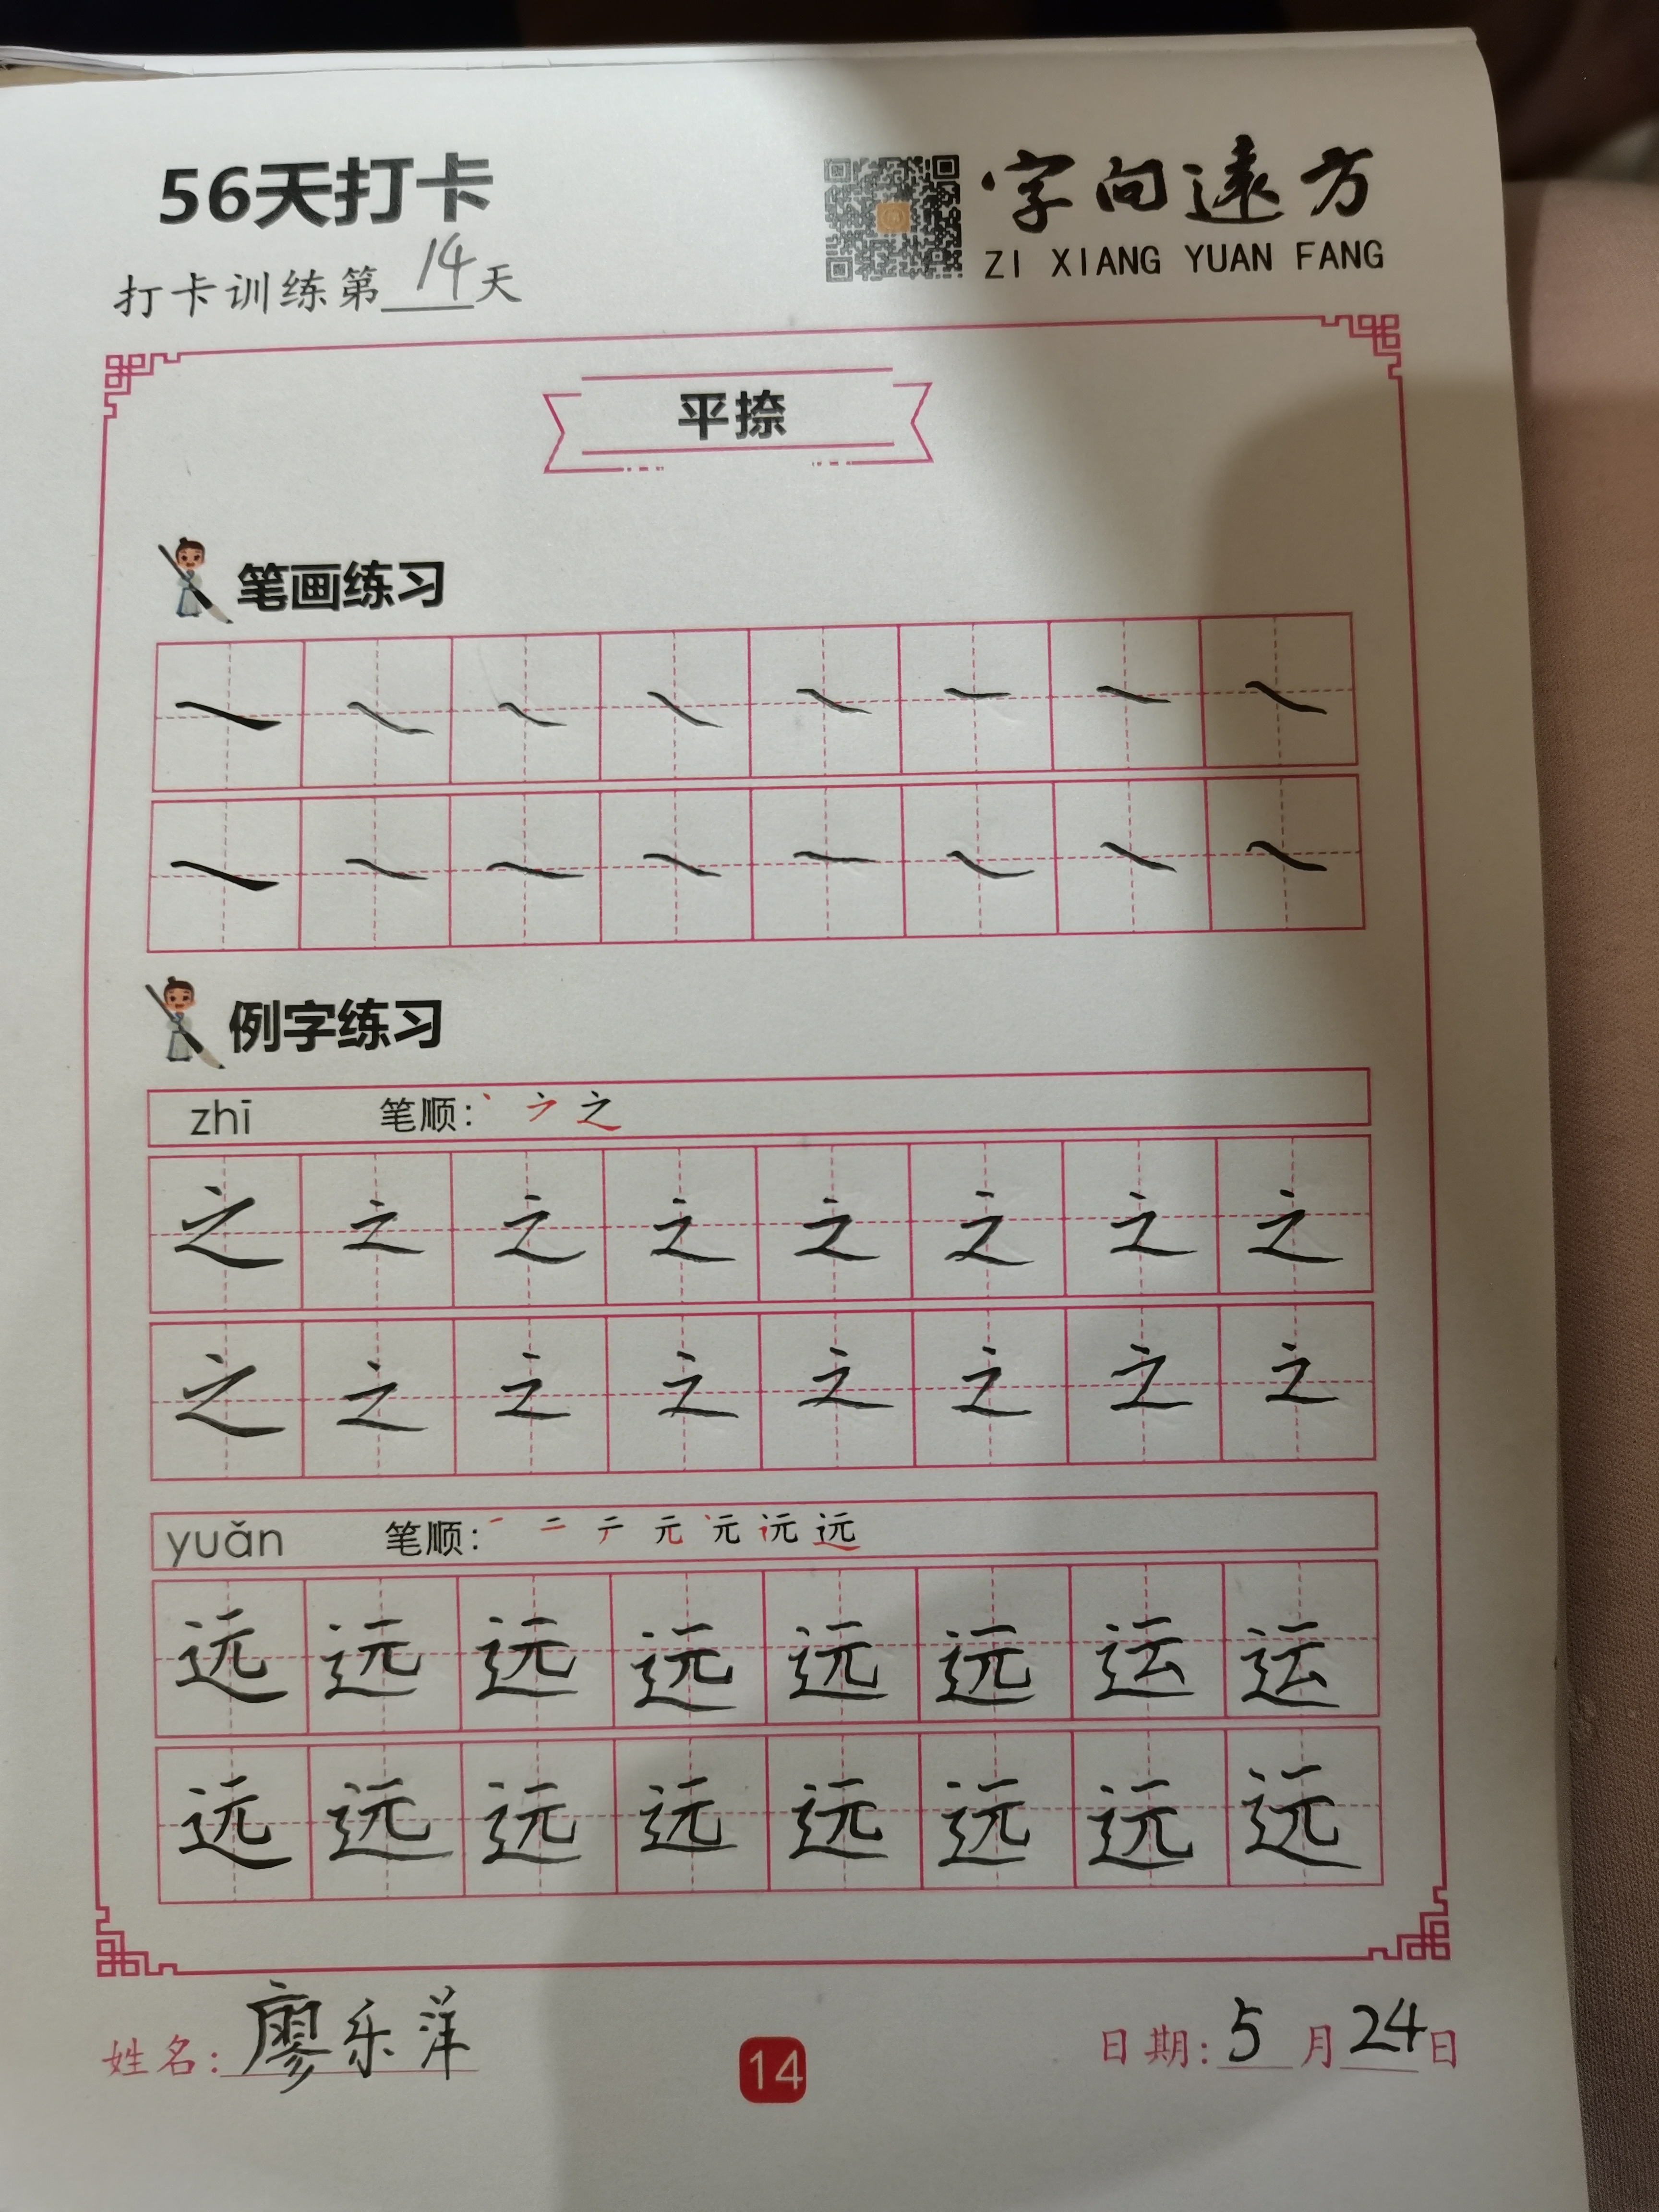 56天打卡
字向遠方
ZI XIANG YUAN FANG
打卡训练第14天
平捺
笔画练习
例字练习
zhī 笔顺: 之
之 之 之 之 之 之 之 之
之 之 之 之 之 之 之 之
yuǎn 笔顺: 一 二 元 远
远 远 远 远 远 远 运 运
远 远 远 远 远 远 远 远
姓名: 廖乐洋
14
日期: 5月24日